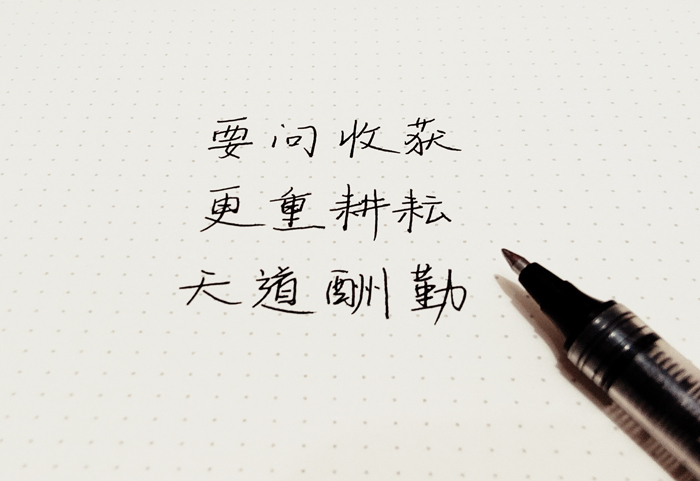 要问收获
更重耕耘
天道酬勤